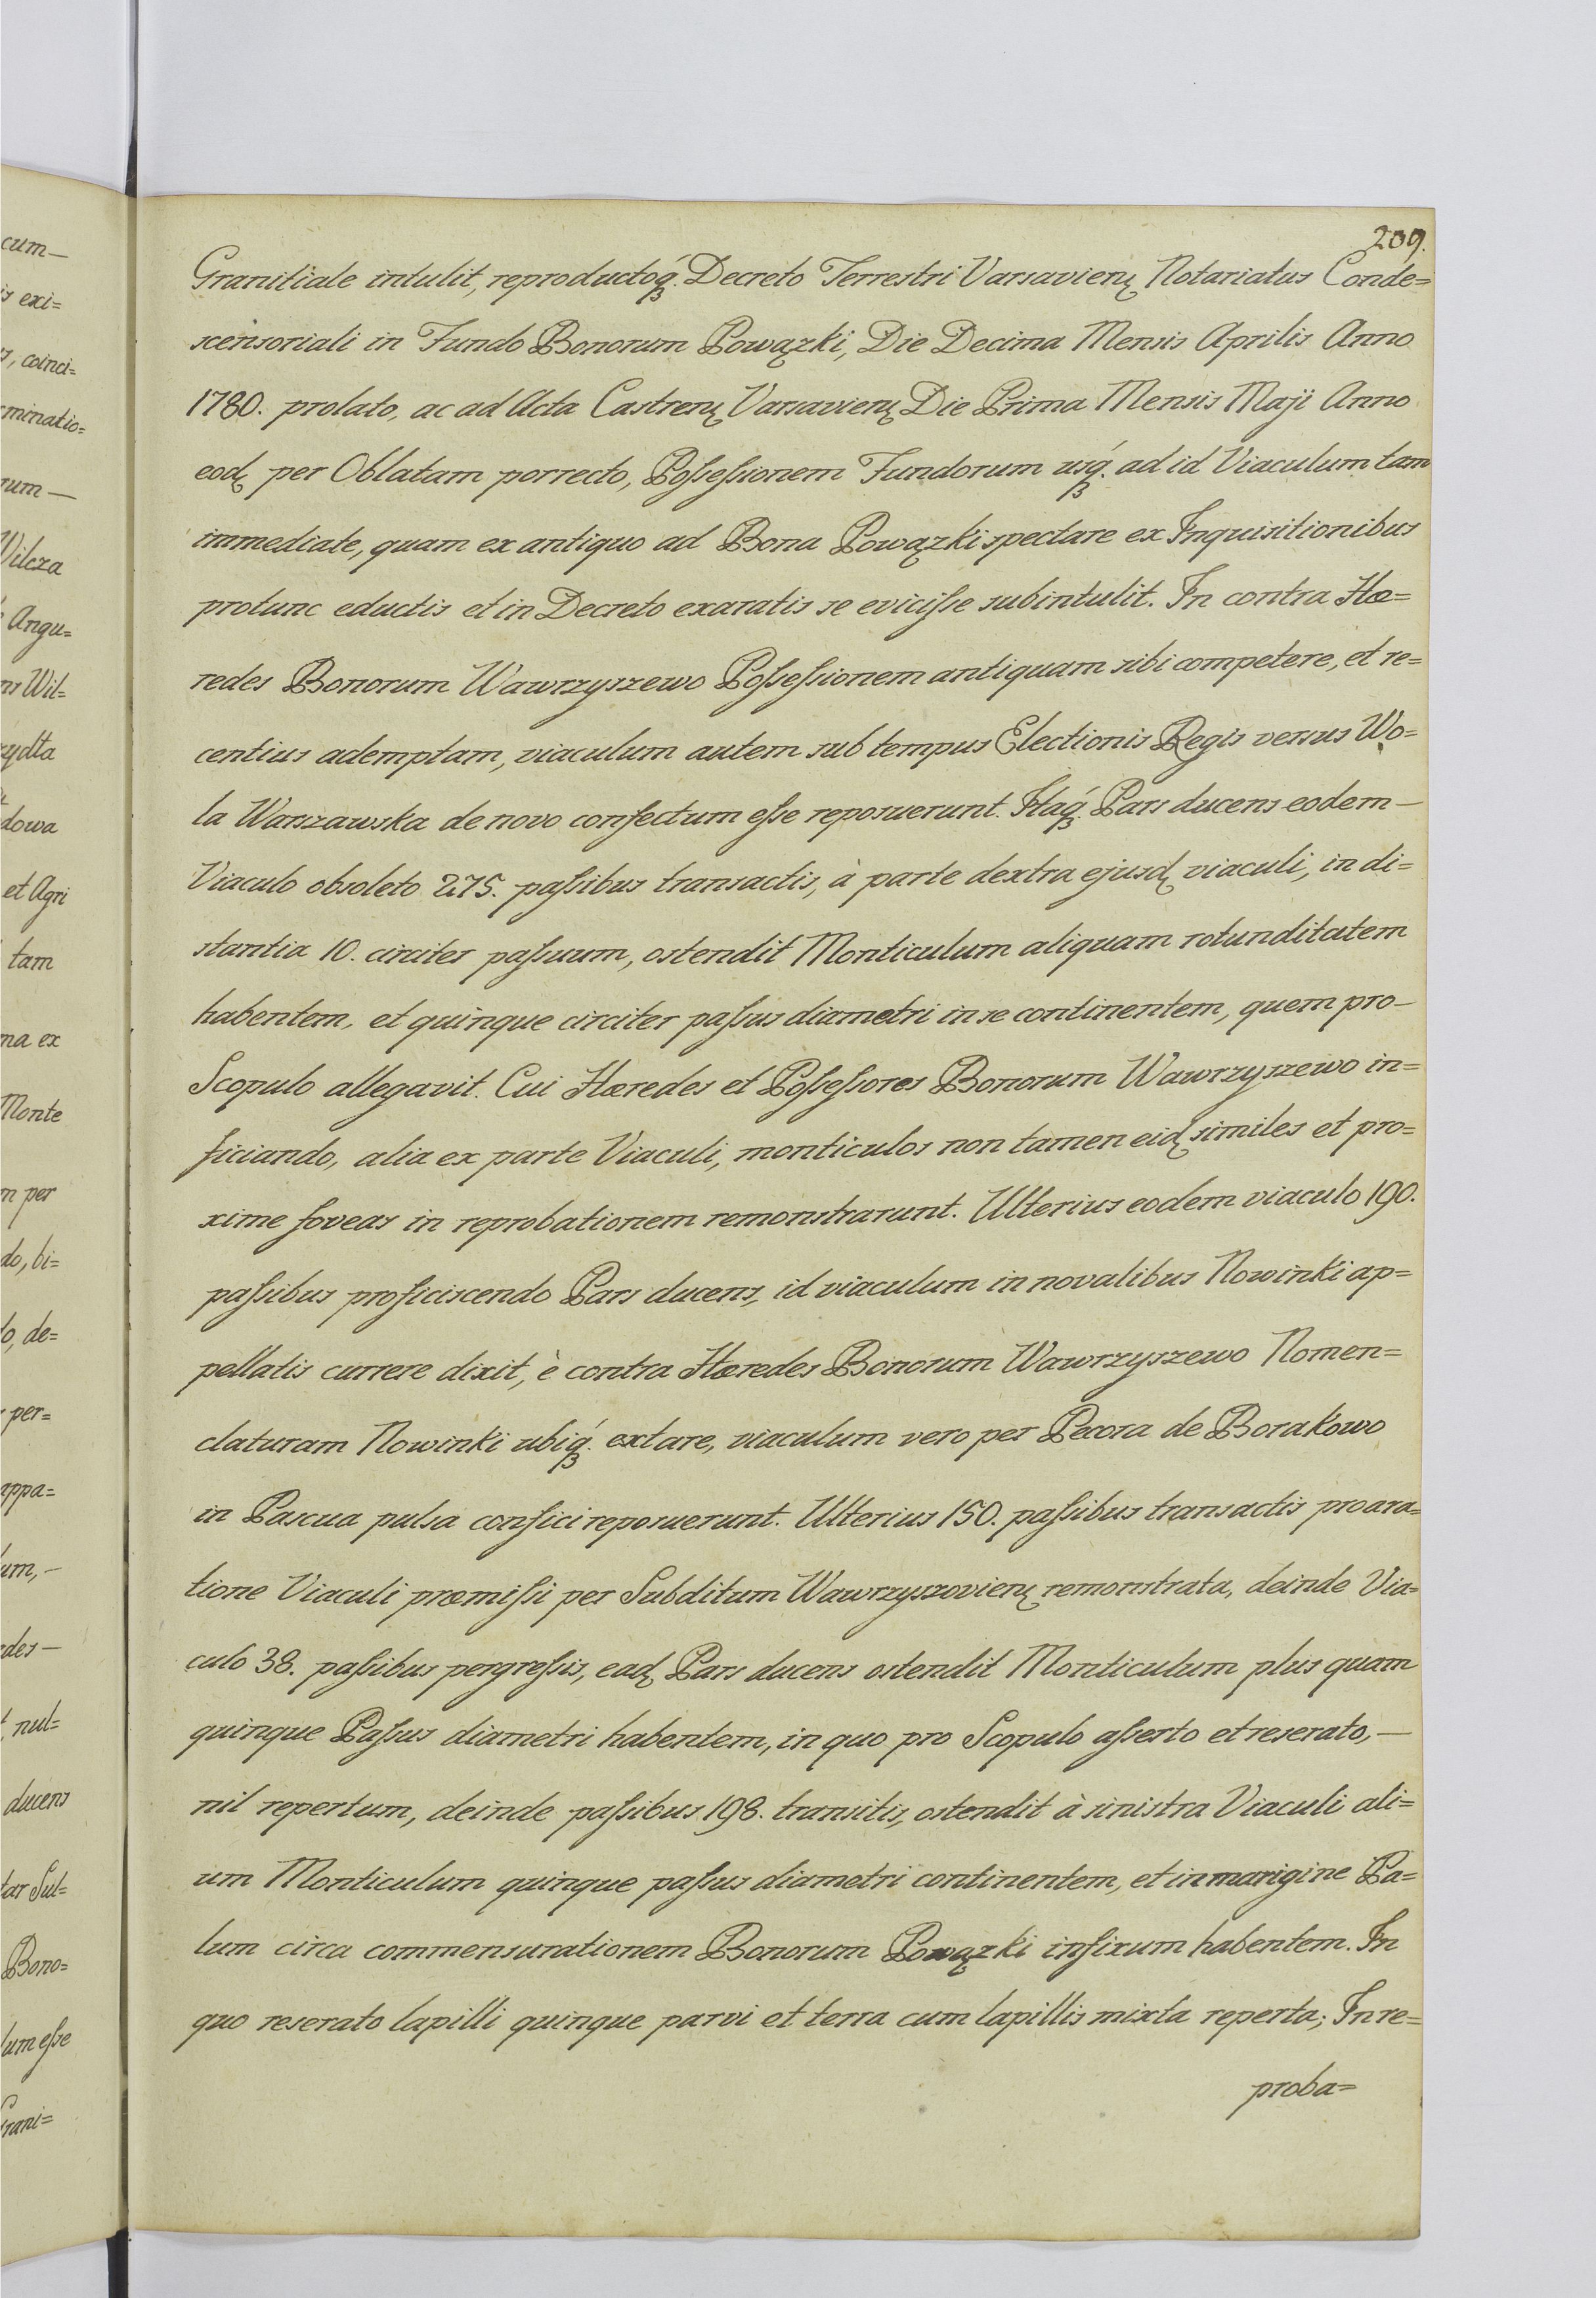 209.
Granitiale intulit, reproductoq́ꝫ. Decreto Terrestri Varsavienꝭ Notariatus Conde=
scensoriali in Fundo Bonorum Powązki, Die Decima Mensis Aprilis Anno
1780. prolato, ac ad Acta Castrenꝭ Varsavienꝭ Die Prima Mensis Maji Anno
eodꝭ per Oblatam porrecto, Poſseſsionem Fundorum usq́ꝫ. ad id Viaculum tam
immediate, quam ex antiquo ad Bona Powązki spectare ex Inquisitionibus
protunc eductis et in Decreto exaratis se eviciſse subintulit. In contra Hæ=
redes Bonorum Wawrzyszewo Poſseſsionem antiquam sibi competere, et re=
centius ademptam, viaculum autem sub tempus Electionis Regis versus Wo=
la Warszawska de novo confectum eſse reposuerunt. Itaq́ꝫ. Pars ducens eodem —
Viaculo obsoleto 275. paſsibus transactis, à parte dextra ejusdꝭ viaculi, in di=
stantia 10. circiter paſsuum, ostendit Monticulum aliquam rotunditatem
habentem, et quinque circiter paſsus diametri in se continentem, quem pro —
Scopulo allegavit. Cui Hæredes et Poſseſsores Bonorum Wawrzyszewo in=
ficiando, alia ex parte Viaculi, monticulos non tamen eidꝭ similes et pro=
xime foveas in reprobationem remonstrarunt. Ulterius eodem viaculo 190.
paſsibus proficiscendo Pars ducens, id viaculum in novalibus Nowinki ap=
pellatis currere dixit, è contra Hæredes Bonorum Wawrzyszewo Nomen=
claturam Nowinki ubiq́ꝫ. extare, viaculum vero per Pecora de Borakowo
in Pascua pulsa confici reposuerunt. Ulterius 150. paſsibus transactis proara=
tione Viaculi præmiſsi per Subditum Wawrzyszovienꝭ remonstrata, deinde Via=
culo 38. paſsibus pergreſsis, eadꝭ Pars ducens ostendit Monticulum plus quam
quinque Paſsus diametri habentem, in quo pro Scopulo aſserto et reserato, —
nil repertum, deinde paſsibus 198. transitis, ostendit à sinistra Viaculi ali=
um Monticulum quinque paſsus diametri continentem, et in marigine Pa=
lum circa commensurationem Bonorum Powązki infixum habentem. In
quo reserato lapilli quinque parvi et terra cum lapillis mixta reperta; In re=
proba=